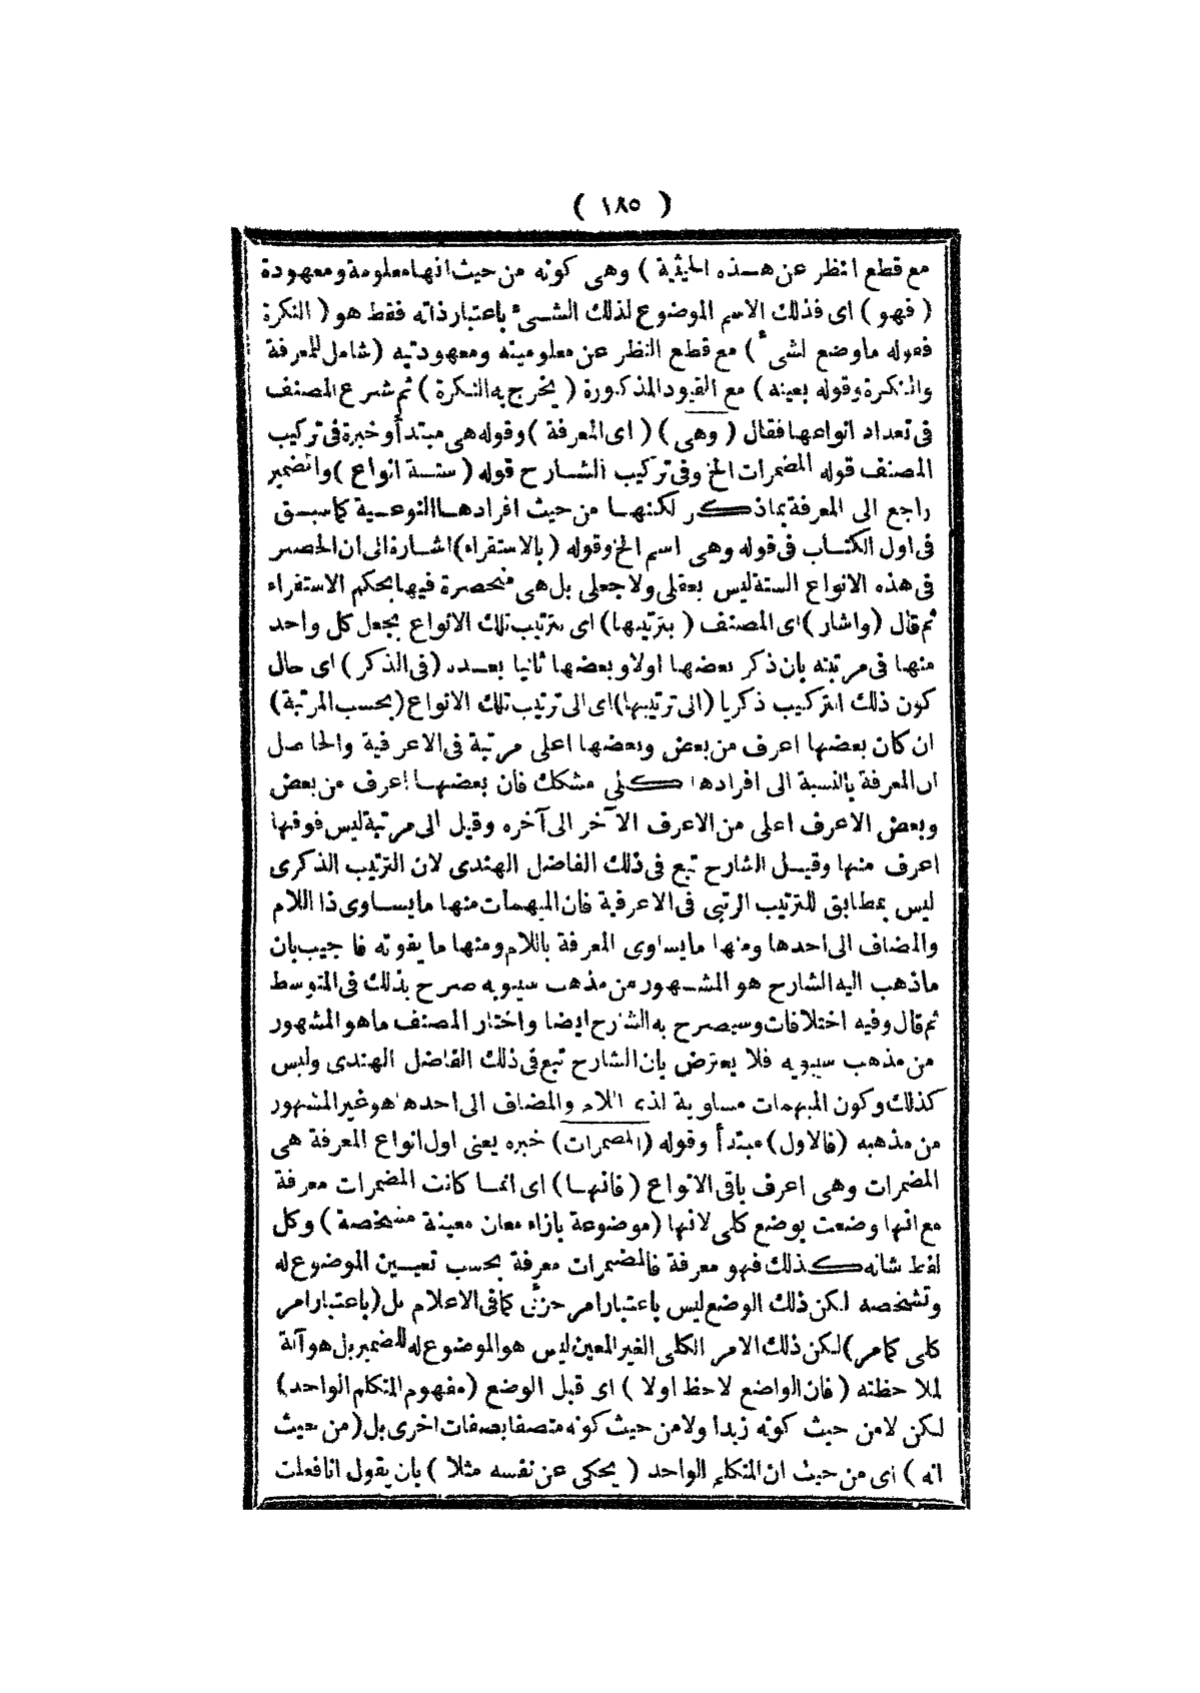 ( ١٨٥ )
مع قطع النظر عن هذه الحيثية ) وهى كونه من حيث انها معلومة ومعهودة
( فهو ) اى فذلك الاسم الموضوع لذلك الشئ باعتبار ذاته فقط هو ( النكرة
فقوله ما وضع لشئ ) مع قطع النظر عن معلوميته ومعهوديته ( شامل للمعرفة
والنكرة وقوله بعينه ) مع القيود المذكورة ( يخرج به النكرة ) ثم شرع المصنف
فى تعداد انواعها فقال ( وهى ) ( اى المعرفة ) وقوله هى مبتدأ وخبرة فى تركيب
المصنف قوله المضمرات الخ وفى تركيب الشارح قوله ( ستة انواع ) والضمير
راجع الى المعرفة بما ذكر لكنها من حيث افرادها النوعية كما سبق
فى اول الكتاب فى قوله وهى اسم الخ وقوله ( بالاستقراء ) اشارة الى ان الحصر
فى هذه الانواع الستة ليس بعقلى ولا جعلى بل هى منحصرة فيها بحكم الاستقراء
ثم قال ( واشار ) اى المصنف ( بترتيبها ) اى بترتيب تلك الانواع بجعل كل واحد
منها فى مرتبته بان ذكر بعضها اولا وبعضها ثانيا بعده ( فى الذكر ) اى حال
كون ذلك التركيب ذكريا ( الى ترتيبها ) اى الى ترتيب تلك الانواع ( بحسب المرتبة )
ان كان بعضها اعرف من بعض وبعضها اعلى مرتبة فى الاعرفية والحاصل
ان المعرفة بالنسبة الى افرادها كلى مشكك فان بعضها اعرف من بعض
وبعض الاعرف اعلى من الاعرف الآخر الى آخره وقيل الى مرتبة ليس فوقها
اعرف منها وقيل الشارح تبع فى ذلك الفاضل الهندى لان الترتيب الذكرى
ليس بمطابق للترتيب الرتبى فى الاعرفية فان المبهمات منها ما يساوى ذا اللام
والمضاف الى احدها ومنها ما يساوى المعرفة باللام ومنها ما يفوته فاجيب بان
ما ذهب اليه الشارح هو المشهور من مذهب سيبويه صرح بذلك فى المتوسط
ثم قال وفيه اختلافات وسيصرح به الشارح ايضا واختار المصنف ما هو المشهور
من مذهب سيبويه فلا يعترض بان الشارح تبع فى ذلك الفاضل الهندى وليس
كذلك وكون المبهمات مساوية لذى اللام والمضاف الى احدها هو غير المشهور
من مذهبه ( فالاول ) مبتدأ وقوله ( المضمرات ) خبره يعنى اول انواع المعرفة هى
المضمرات وهى اعرف باقى الانواع ( فانها ) اى انما كانت المضمرات معرفة
مع انها وضعت بوضع كلى لانها ( موضوعة بازاء معان معينة مشخصة ) وكل
لفظ شانه كذلك فهو معرفة فالمضمرات معرفة بحسب تعيين الموضوع له
وتشخصه لكن ذلك الوضع ليس باعتبار امر جزئى كما فى الاعلام بل ( باعتبار امر
كلى كما مر ) لكن ذلك الامر الكلى الغير المعين ليس هو الموضوع له للضمير بل هو آلة
لملاحظته ( فان الواضع لاحظ اولا ) اى قبل الوضع ( مفهوم المتكلم الواحد )
لكن لا من حيث كونه زيدا ولا من حيث كونه متصفا بصفات اخرى بل ( من حيث
انه ) اى من حيث ان المتكلم الواحد ( يحكى عن نفسه مثلا ) بان يقول انا فعلت